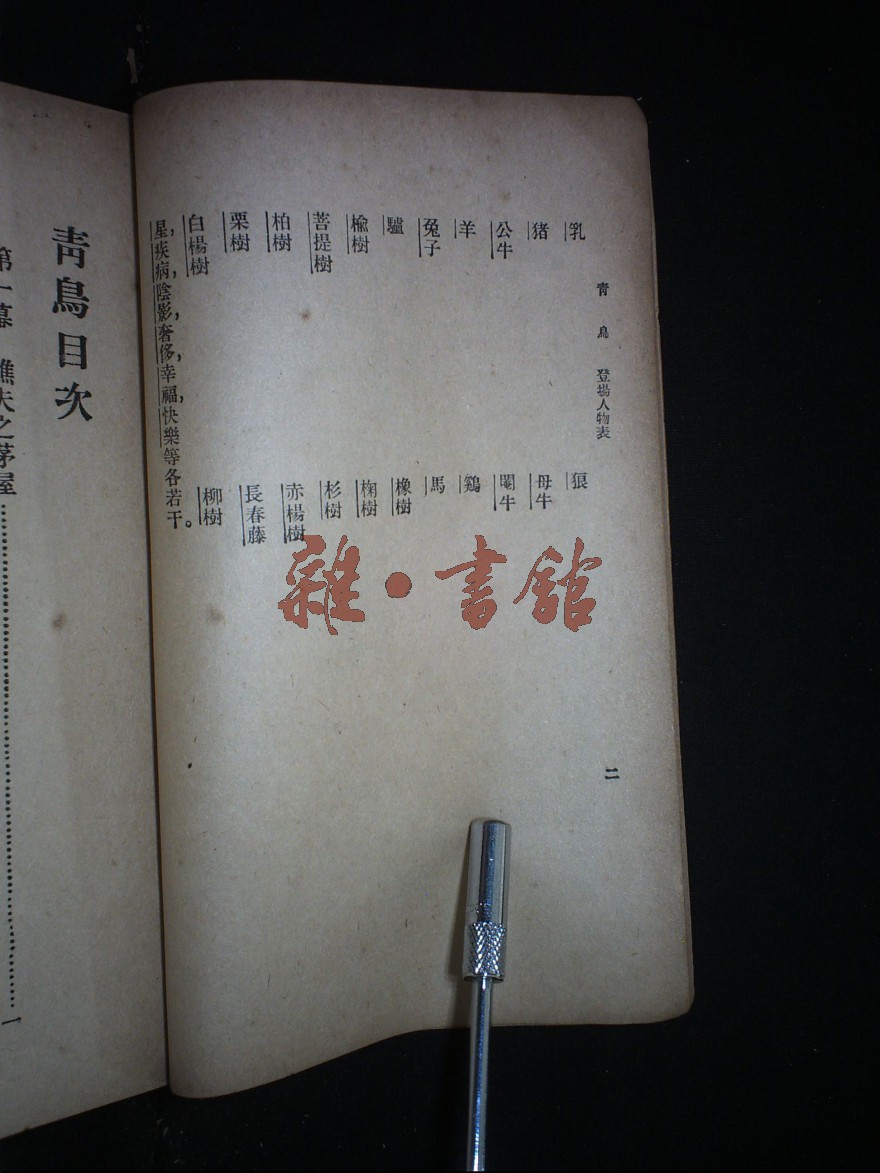 青鳥 登場人物表
二
乳
狼
猪
母牛
公牛
閹牛
羊
鷄
兔子
馬
驢
橡樹
榆樹
椈樹
菩提樹
杉樹
柏樹
赤楊樹
栗樹
長春藤
白楊樹
柳樹
星，疾病，陰影，奢侈，幸福，快樂等各若干。
青鳥目次
第一幕 樵夫之茅屋……一
雜·書館